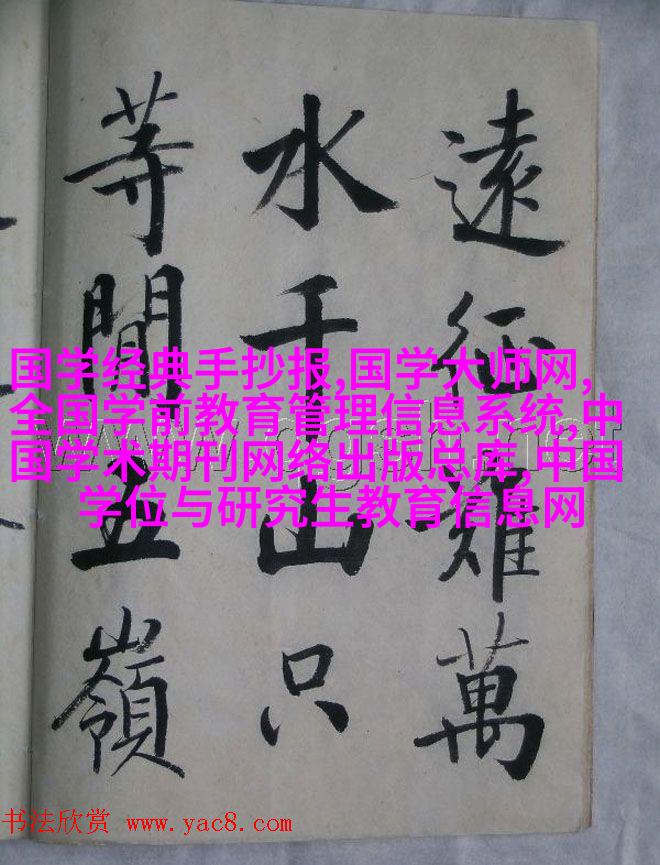 遠征難萬
水千山只
等閒五嶺
国学经典手抄报,国学大师网,
全国学前教育管理信息系统,中
国学术期刊网络出版总库,中国
学位与研究生教育信息网
书法欣赏 www.yac8.com